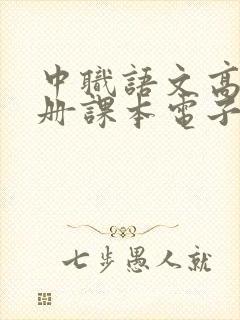 中職語文高
册課本電子
七步愚人就